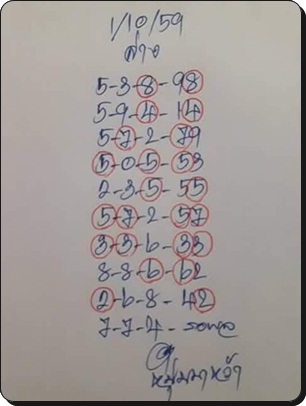 1/10/59
ล่าง
5-3-8-98
5-9-4-14
5-7-2-79
5-0-5-53
2-3-5-55
5-7-2-57
3-3-6-33
8-8-6-62
2-6-8-42
7-7-4-รอผล